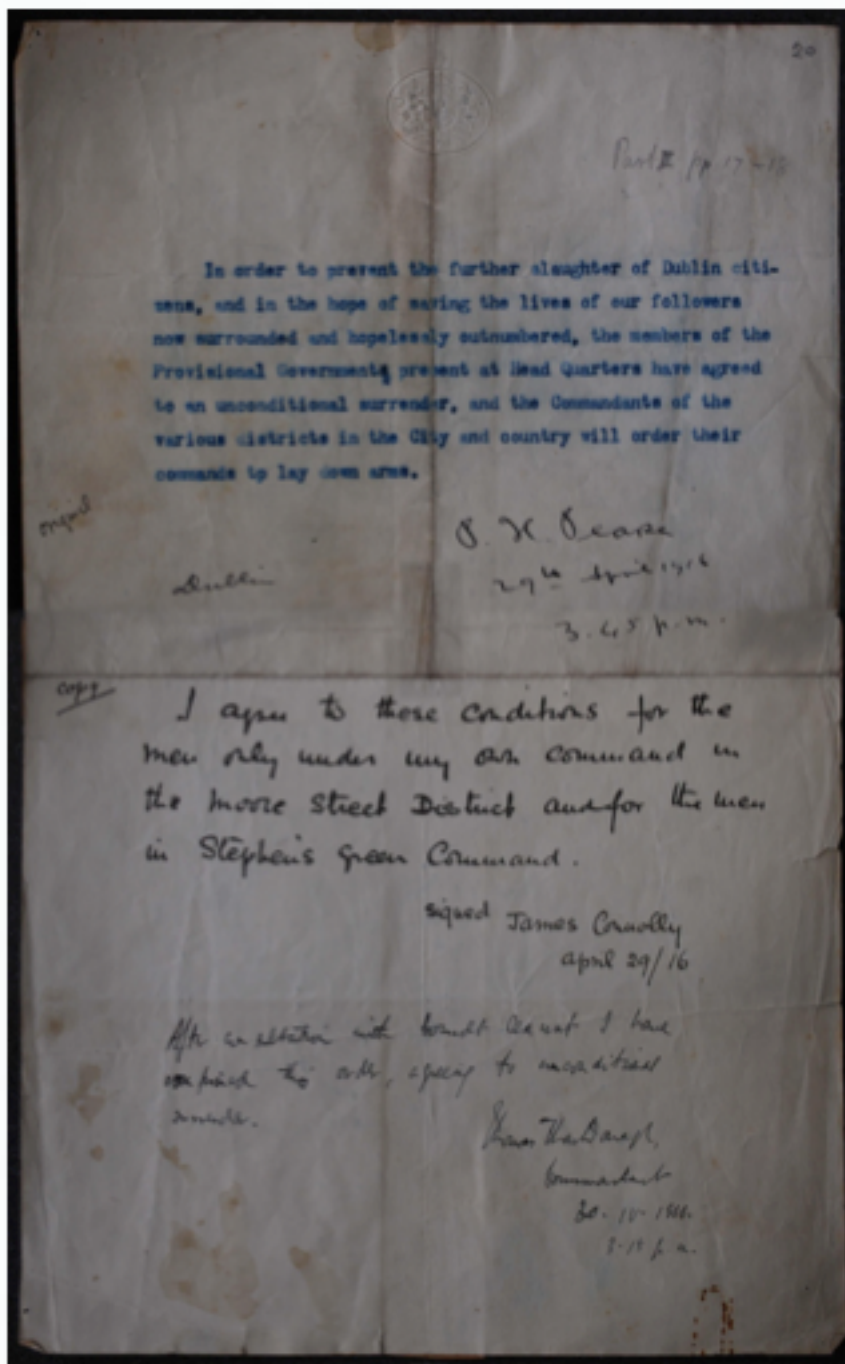 20
Part II pp 17-
In order to prevent the further slaughter of Dublin citi-
zens, and in the hope of saving the lives of our followers
now surrounded and hopelessly outnumbered, the members of the
Provisional Government present at Head Quarters have agreed
to an unconditional surrender, and the Commandants of the
various districts in the City and country will order their
commands to lay down arms.
original
P. H. Pearse
Dublin
29th April 1916
3.45 p.m.
copy
I agree to these conditions for the
men only under my own command in
the Moore Street District and for the men
in Stephen's Green Command.
signed James Connolly
april 29/16
After consultation with Commandt Ceannt I have
confirmed this order, agreeing to unconditional
surrender.
Thomas MacDonagh,
Commandant
30.IV.1916.
3.15 p.m.